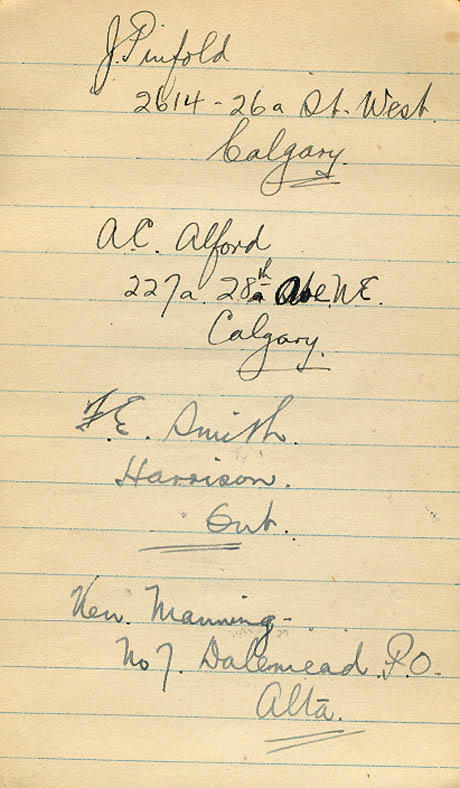 J. Pinfold
2614 - 26a St. West.
Calgary.
A.C. Alford
227a. 28th Ave. N.E.
Calgary.
F.E. Smith.
Harrison.
Ont.
Ken. Manning-
No 7. Dalemead. P.O.
Alta.